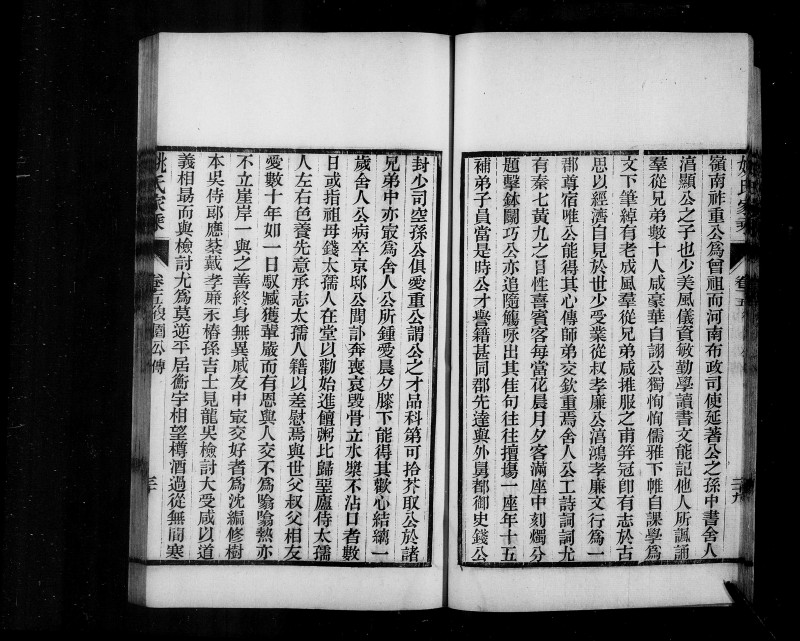 嶺南祚重公爲曾祖而河南布政司使延著公之孫中書舍人
淯顯公之子也少美風儀資敏勤學讀書文能記他人所諷誦
羣從兄弟數十人咸豪華自詡公獨恂恂儒雅下帷自課學爲
文下筆綽有老成風羣從兄弟咸推服之甫筓冠卽有志於古
思以經濟自見於世少受業從叔孝廉公淯鴻孝廉文行爲一
郡尊宿唯公能得其心傳師弟交欽重焉舍人公工詩詞詞尤
有秦七黃九之目性喜賓客每當花晨月夕客滿座中刻燭分
題擊鉢鬭巧公亦追隨觴咏出其佳句往往擅塲一座年十五
補弟子員當是時公才譽籍甚同郡先達與外舅都御史錢公
封少司空孫公俱愛重公謂公之才品科第可拾芥取公於諸
兄弟中亦最爲舍人公所鍾愛晨夕膝下能得其歡心結褵一
歲舍人公病卒京邸公聞訃奔喪哀毀骨立水漿不沾口者數
日或指祖母錢太孺人在堂以勸始進饘粥比歸堊廬侍太孺
人左右色養先意承志太孺人籍以差慰焉與世父叔父相友
愛數十年如一日馭臧獲輩嚴而有恩與人交不爲翕翕熱亦
不立崖岸一與之善終身無異戚友中最交好者爲沈編修樹
本吳侍郎應棻戴孝廉永椿孫吉士見龍吳檢討大受咸以道
義相勗而與檢討尤爲莫逆平居衡宇相望樽酒過從無間寒
姚氏家乘
卷五
三